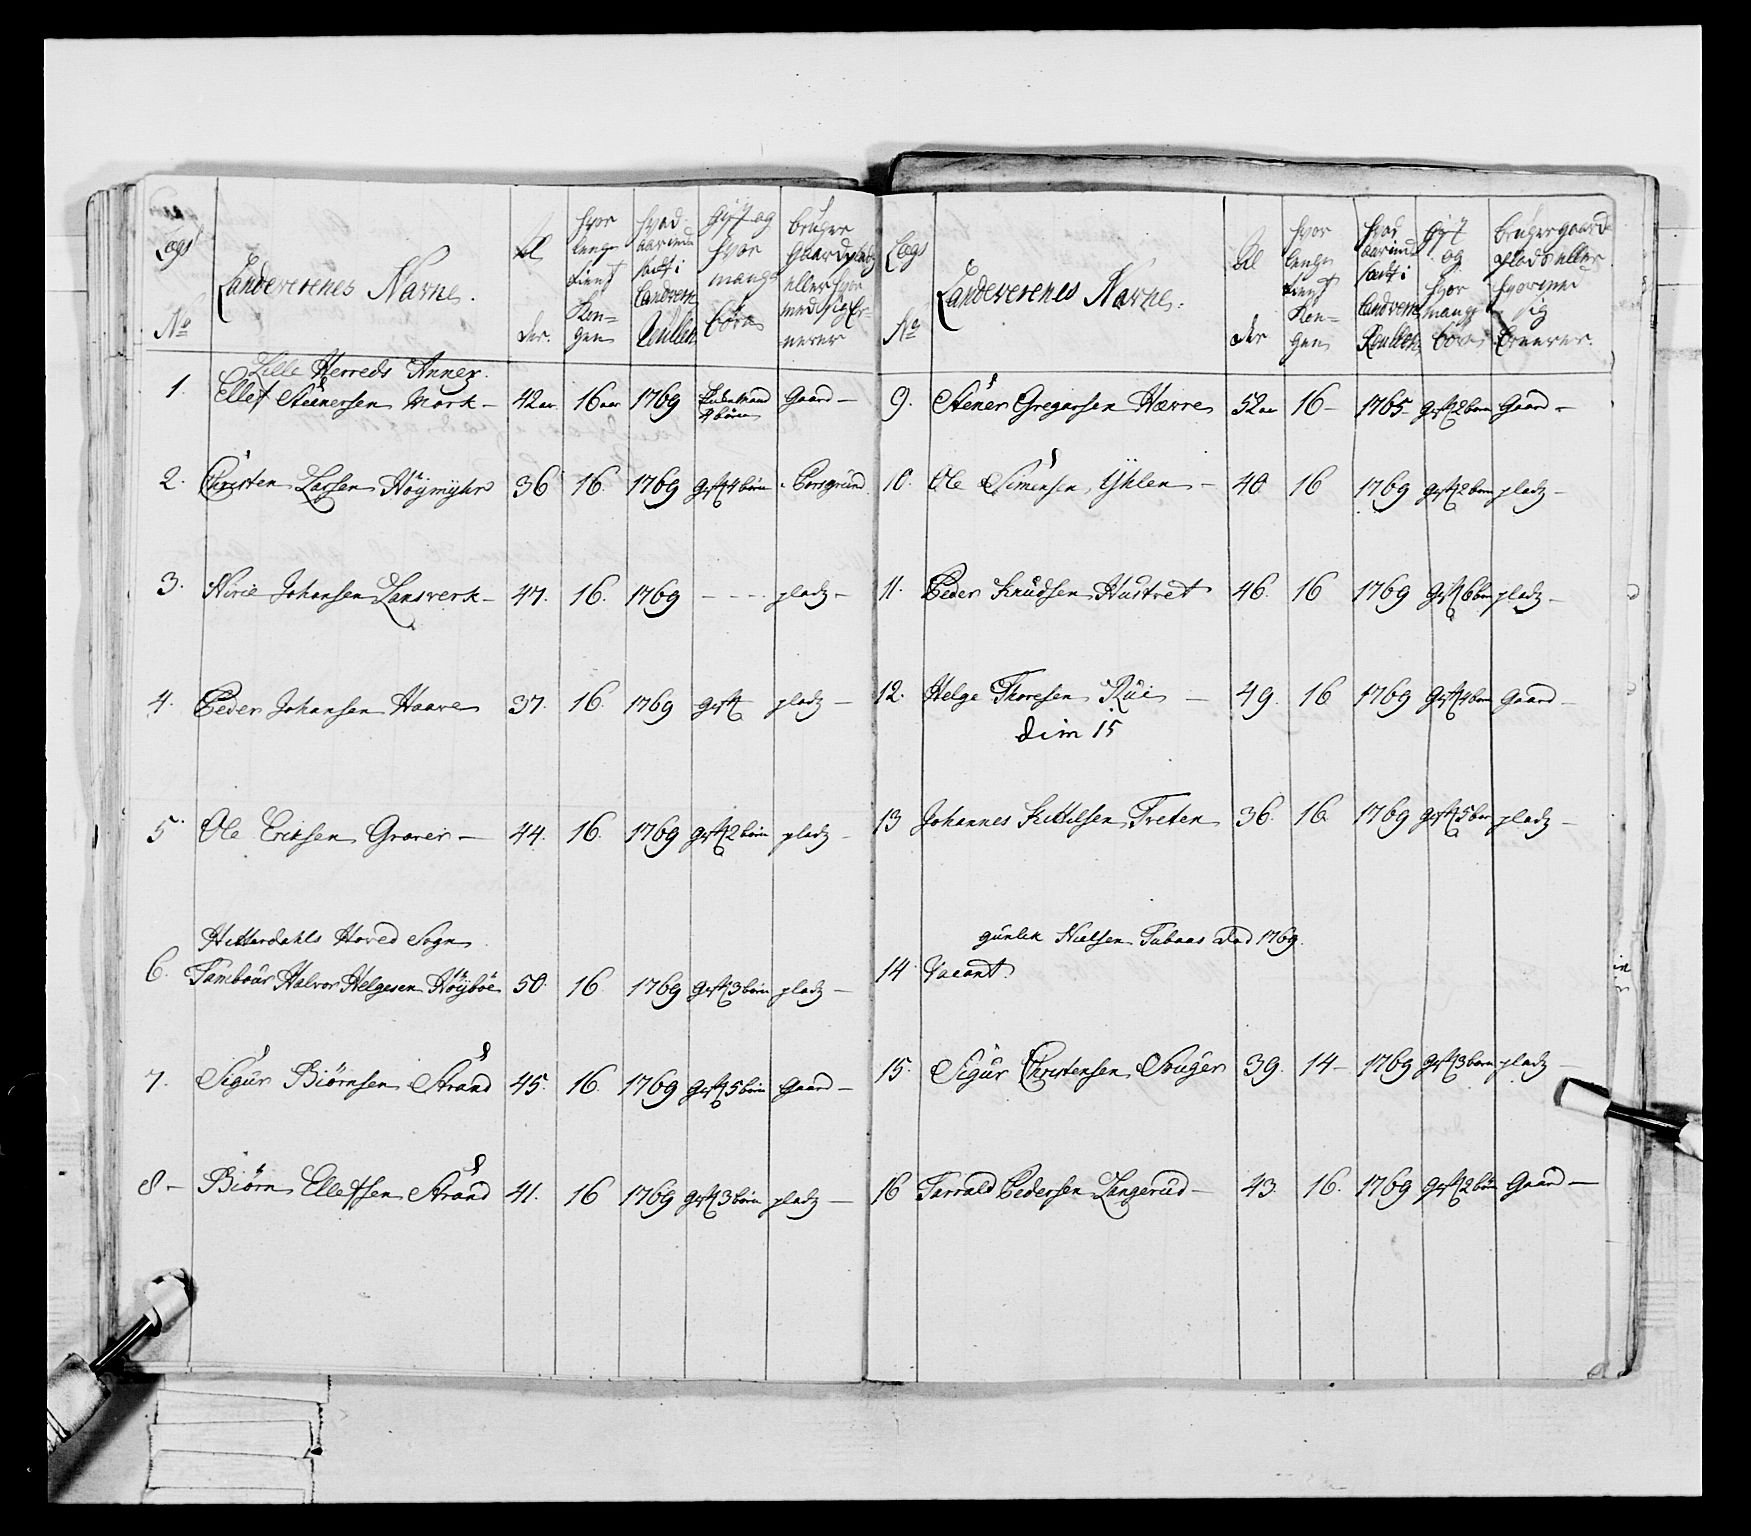 Lægs
No
Landeverenes Navne.
Al
der.
hvor
lenge
tient
Kon=
gen
hvad
aar ind
sadt i
Landvern
Rullen
gift og
hvor
mange
børn
bruger
Gaard pladz
eller hvor
med sig Er-
nerer
Lille Herreds Annex.
1. Ellef Steenersen Mork - 42 aar 16 aar 1769 Enkemand 4 børn Gaard -
2. Christen Larsen Höymyhr 36 16. 1769 gift 4 børn Borsgrund
3. Nirie Johansen Lansverk - 47. 16. 1769 - - - - pladz -
4. Peder Johansen Haave 37. 16. 1769 gift pladz -
5. Ole Eriksen Graver - 44. 16. 1769 gift 2 børn pladz -
Hitterdahls Hoved Sogn
6. Tambour Halvor Helgesen Höÿböe 50. 16. 1769 gift 3 børn pladz -
7. Sigur Biørnsen Strand 45. 16. 1769 gift 5 børn Gaard -
8 - Biørn Ellefsen Strand 41. 16 1769 gift 3 børn pladz -
Lægs
No
Landeverenes Navne.
Al
der
hvor
lenge
tient
Kon=
gen
hvad
aar ind
sadt i
Landvern
Rullen
gift
og
hvor
mange
børn
bruger gaard
plads eller
hvormed
sig
Ernerer.
9. Stener Gregarsen Hævre 52 aar 16 - 1765 gift 2 børn Gaard -
10. Ole Simensen Yhlen - 40 16 1769 gift 2 børn pladz -
11. Peder Knudsen Hustvet 46. 16 1769 gift 6 børn pladz -
12. Helge Thoresen Rui - 49. 16 1769 gift 4 børn Gaard -
dim 15
13 Johannes Kittilsen Treten 36. 16. 1769 gift 5 bør pladz -
gunlek Nielsen Tubaas død 1769.
14. Vacant
15. Sigur Christensen Souger 39. 14 - 1769 gift 3 børn pladz -
16 Tarrald Pedersen Langerud - 43. 16. 1769 gift 2 børn Gaard -